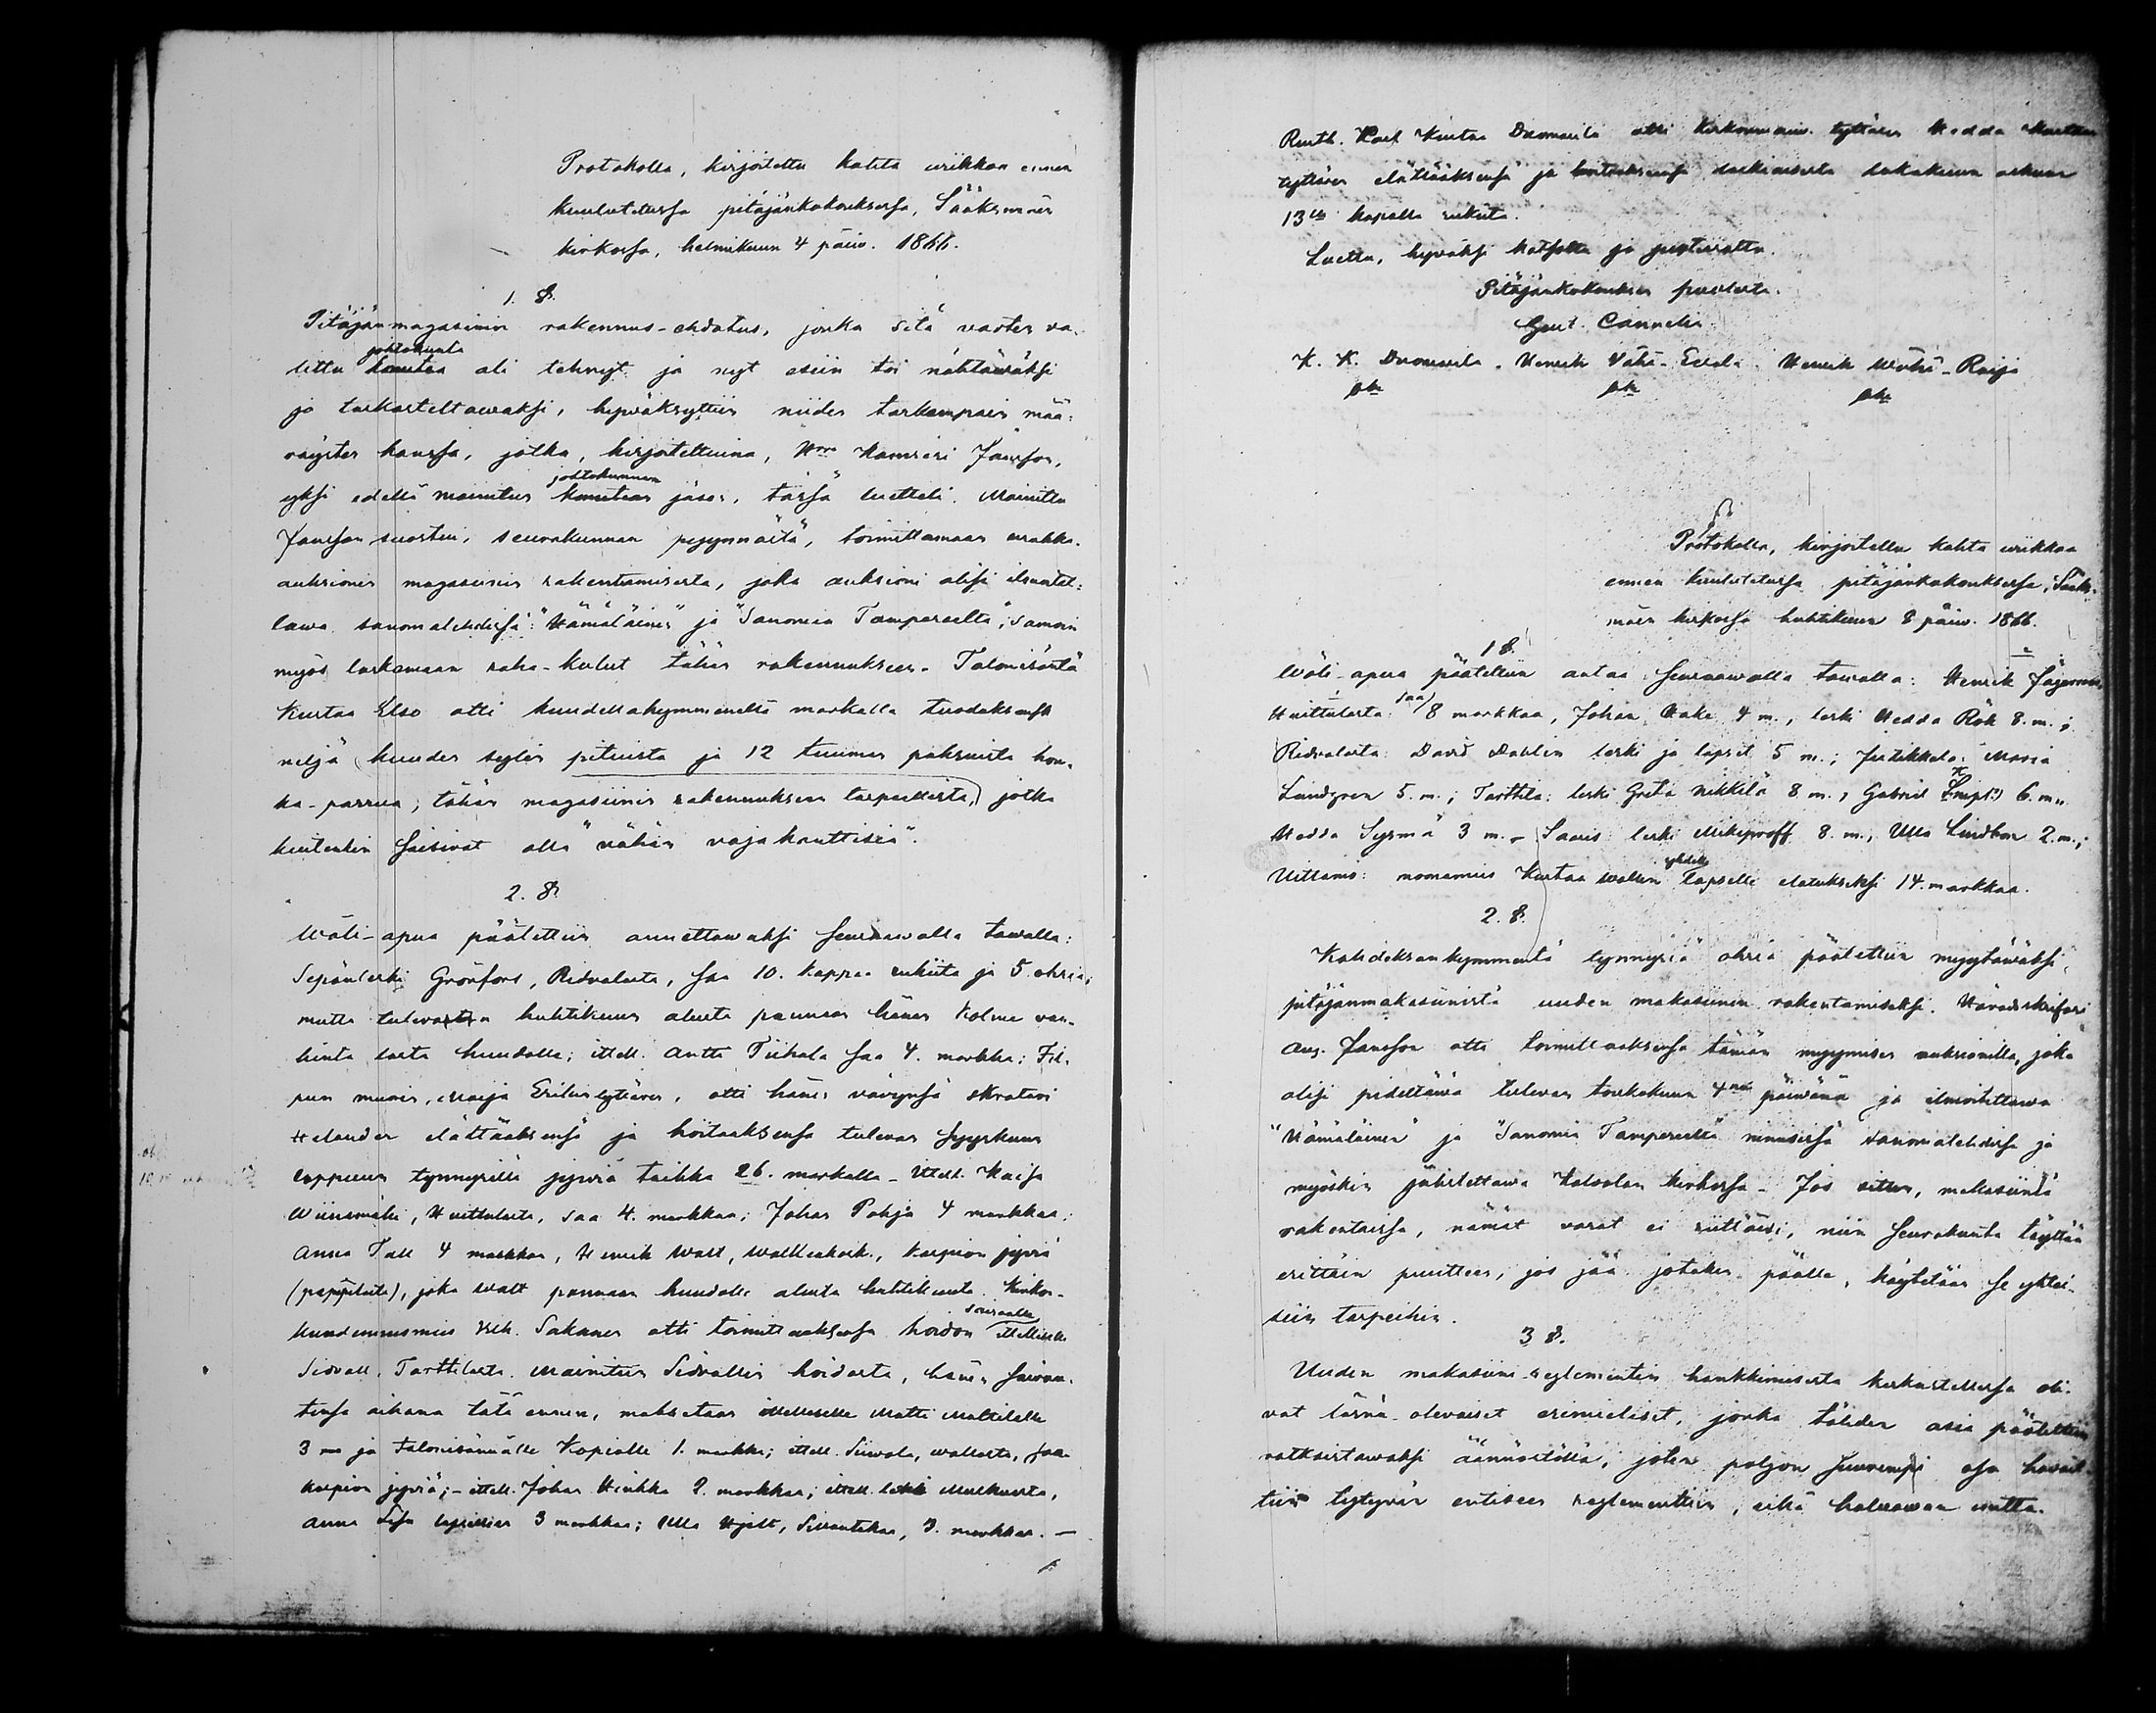 Protokolla, kirjoitettu kahta wiikkoa ennen
kuulutetussa pitäjänkokouksessa, Sääksmäen
kirkossa, helmikuun 4 päiw. 1866.
1. §.
Pitäjänmagasinin rakennus-ehdotus, jonka sitä varten va-
johtokunta
littu komitea oli tehnyt ja nyt esiin toi nähtäwäksi
ja tarkasteltawaksi, hywäksyttiin niiden tarkempain mää-
räysten kanssa, jotka, kirjoitettuina, Hra Kamreri Jansson,
johtokunnan
yksi edellä mainitun komitean jäsen, tässä luetteli. Mainittu
Jansson suostui, seurakunnan pyynnöstä, toimittamaan urakka-
auksionin magasinin rakentamisesta, joka auksioni olisi ilmoitet-
tawa sanomalehdissä: "Hämäläinen" ja "Sanomia Tampereelta", samoin
myös laskemaan raha-kulut tähän rakennukseen. Talonisäntä
Kustaa Elso otti kuudellakymmenellä markalla tuodaksensa
neljä kuuden sylen pituista ja 12 tuuman paksuista hon-
ka-parrua, tähän magasiinin rakennuksen tarpeellista, jotka
kuitenkin saisivat olla "vähän vajakanttisia".
2. §.
Wäli-apua päätettiin annettawaksi seuraawalla tawalla:
Sepänleski Grönfors, Ridvalasta, saa 10. kappaa rukiita ja 5. ohria;
mutta tulevasta huhtikuun alusta pannaan hänen kolme van-
hinta lasta huudolle; ittell. Antti Tiihala saa 4. markkaa; Fil-
pun muori, Maija Erikintytären, otti hänen vävynsä skratari
Helander elättääksensä ja hoitaaksensa tulevan syyskuun
loppuun tynnyrillä jyviä taikka 26. markalla - Ittell. Kaisa
Wiinamäki, Huittulasta, saa 4. markkaa; Johan Pohja 4 markkaa;
Anna Tall 4 markkaa, Henrik Wall, Walkeakosk., karpion jyviä
(pappilasta), joka Wall pannaan huudolle alusta huhtikuuta. Kirkon-
sairaalle
kuudennusmies Sakunen otti toimittaaksensa hoidon ittelliselle
Sidvall, Tarttilasta. Mainitun Sidvallin hoidosta, hänen sairau-
tensa aikana tätä ennen, maksetaan ittelliselle Matti Mattilalle
3 m ja talonisännälle Kopialle 1. markka; ittell. Siwola, wallasta, saa
karpion jyviä; - ittell. Johan Hinkka 2. markkaa; ittell. leski
Anna Lisa 3 markkaa; Ulla Hjelt, 3. markkaa. -
Kustaa Duomarila otti tyttären Hedda
tyttären elättääksensä ja hoitaaksensa lokakuun
13 kapalla rukiita.
Luettu, hyväksi katsottu ja justeerattu.
Pitäjänkokouksen puolesta.
Gust. Cannelin.
K. K. Duomarila. Henrik Vähä-Eerola. Henrik Vähä-Raija
Protokolla, kirjoitettu kahta wiikkoa
ennen kuulutetussa pitäjänkokouksessa, Sääks-
mäen kirkossa huhtikuun 8 päiw. 1866.
1 §.
Wäli-apua päätettiin antaa seuraawalla tawalla: Henrik
Huittulasta saa 8 markkaa, Johan 4 m., leski Hedda Rök 8. m.;
Ridvalasta: David Dahlin leski ja lapset 5 m.; Jutikkala: Maria
Lindgren 5. m.; Tarttila: leski Greta Nikkilä 8 m., Gabriel 6. m.,
Hedda Syrmä 3 m. - Saaris: leski 8. m., Ulla 2. m.;
yhdelle
Uittamo: nuorimies Kustaa Wallin lapselle elatukseksi 14. markkaa.
2. §.
Kahdeksankymmentä tynnyriä ohria päätettiin myytäwäksi,
pitäjänmakasiinista uuden makasiinin rakentamiseksi. Häradsskrifvari
Aug. Jansson otti toimittaaksensa tämän myymisen auksionilla, joka
olisi pidettäwä tulevan toukokuun 4nä päiwänä ja ilmoitettawa
"Hämäläinen" ja "Sanomia Tampereelta" nimisissä sanomalehdissä ja
myöskin julistettawa Kalvolan kirkossa. Jos sitten, makasiinia
rakentaissa, nämät varat ei riittäisi, niin seurakunta täyttää
erittäin puutteen, jos jää jotakin päälle, käytetään se yhtei-
siin tarpeihin.
3 §.
Uuden makasiini-reglementin hankkimisesta keskustellessa oli-
vat läsnä-olevaiset erimieliset, jonka tähden asia päätettiin
ratkaistawaksi äännöstöllä; joten paljon suurempi osa havait-
tiin tytyvän entiseen reglementtiin, eikä haluawan uutta.